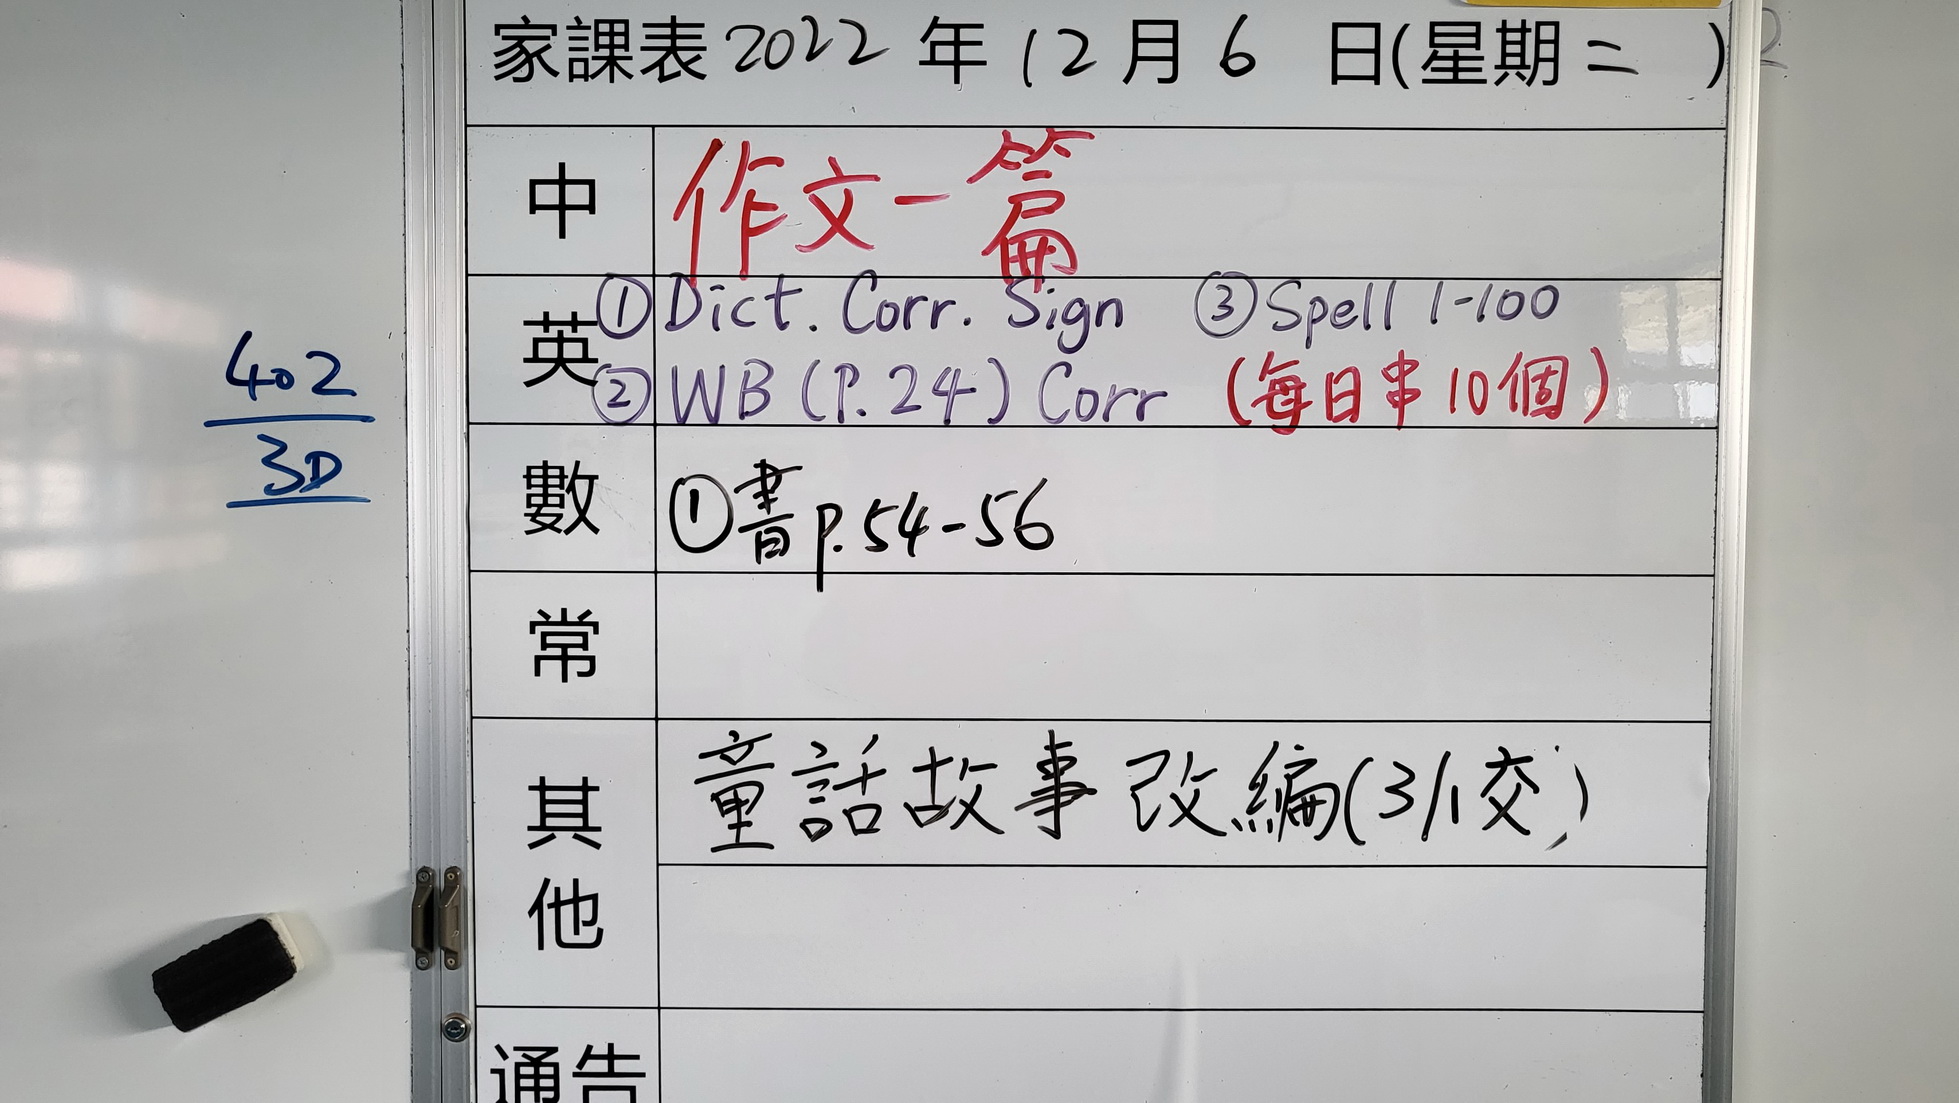 家課表 2022 年 12 月 6 日(星期 二 )
中 作文一篇
英 ① Dict. Corr. Sign ③ Spell 1-100
② WB (P.24) Corr (每日串10個)
數 ①書p.54-56
常
其他 童話故事改編(3/1交)
通告
402
3D